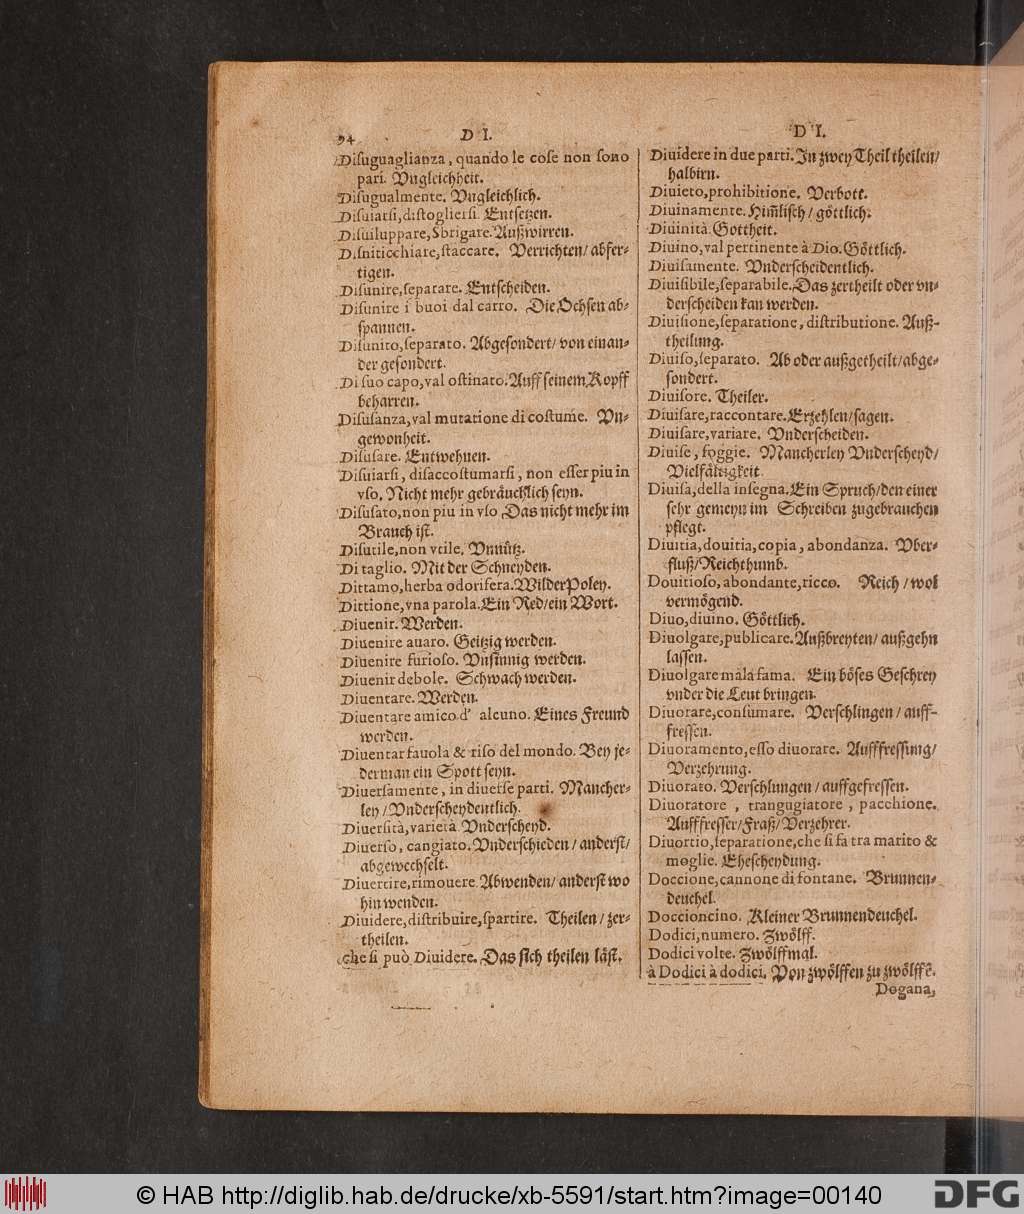 94
D I.
Disuguaglianza, quando le cose non sono
pari. Vngleichheit.
Disugualmente. Vngleichlich.
Disuiarsi, distogliersi. Entsetzen.
Disuiluppare, sbrigare. Außwirren.
Disniticchiare, staccare. Verrichten/ abfer-
tigen.
Disunire, separare. Entscheiden.
Disunire i buoi dal carro. Die Ochsen ab-
spannen.
Disunito, separato. Abgesondert/ von einan-
der gesondert.
Di suo capo, val ostinato. Auff seinem Kopff
beharren.
Disusanza, val mutatione di costume. Vn-
gewonheit.
Disusare. Entwehnen.
Disuiarsi, disaccostumarsi, non esser piu in
vso. Nicht mehr gebräucklich seyn.
Disusato, non piu in vso Das nicht mehr im
Brauch ist.
Disutile, non vtile. Vnnütz.
Di taglio. Mit der Schneyden.
Dittamo, herba odorifera. Wilder Poley.
Dittione, vna parola. Ein Red/ ein Wort.
Diuenir. Werden.
Diuenire auaro. Geitzig werden.
Diuenire furioso. Vnsinnig werden.
Diuenir debole. Schwach werden.
Diuentare. Werden.
Diuentare amico d' alcuno. Eines Freund
werden.
Diuentar fauola & riso del mondo. Bey je-
derman ein Spott seyn.
Diuersamente, in diuerse parti. Mancher-
ley / Vnderscheydentlich.
Diuersità, varietà Vnderscheyd.
Diuerso, cangiato. Vnderschieden / anderst/
abgewechselt.
Diuertire, rimouere Abwenden/ anderst wo
hin wenden.
Diuidere, distribuire, spartire. Theilen / zer-
theilen.
che si può Diuidere. Das sich theilen läst.
D I.
Diuidere in due parti. In zwey Theil theilen/
halbirn.
Diuieto, prohibitione. Verbott.
Diuinamente. Him̃lisch / göttlich.
Diuinità Gottheit.
Diuino, val pertinente à Dio. Göttlich.
Diuisamente. Vnderscheidentlich.
Diuisibile, separabile. Das zertheilt oder vn-
derscheiden kan werden.
Diuisione, separatione, distributione. Auß-
theilung.
Diuiso, separato. Ab oder außgetheilt/ abge-
sondert.
Diuisore. Theiler.
Diuisare, raccontare. Erzehlen/ sagen.
Diuisare, variare. Vnderscheiden.
Diuise, foggie. Mancherley Vnderscheyd/
Vielfältigkeit.
Diuisa, della insegna. Ein Spruch/ den einer
sehr gemeyn im Schreiben zugebrauchen
pflegt.
Diuitia, douitia, copia, abondanza. Vber-
fluß/ Reichthumb.
Douitioso, abondante, ricco. Reich / wol
vermögend.
Diuo, diuino. Göttlich.
Diuolgare, publicare. Außbreyten/ außgehn
lassen.
Diuolgare mala fama. Ein böses Geschrey
vnder die Leut bringen.
Diuorare, consumare. Verschlingen / auff-
fressen.
Diuoramento, esso diuorare. Aufffressung/
Verzehrung.
Diuorato. Verschlungen / auffgefressen.
Diuoratore, trangugiatore, pacchione.
Aufffresser/ Fraß/ Verzehrer.
Diuortio, separatione, che si fa tra marito &
moglie. Ehescheydung.
Doccione, cannone di fontane. Brunnen-
deuchel.
Doccioncino. Kleiner Brunnendeuchel.
Dodici, numero. Zwölff.
Dodici volte. Zwölffmal.
à Dodici à dodici. Von zwölffen zu zwölffē.
Dogana,
© HAB http://diglib.hab.de/drucke/xb-5591/start.htm?image=00140
DFG